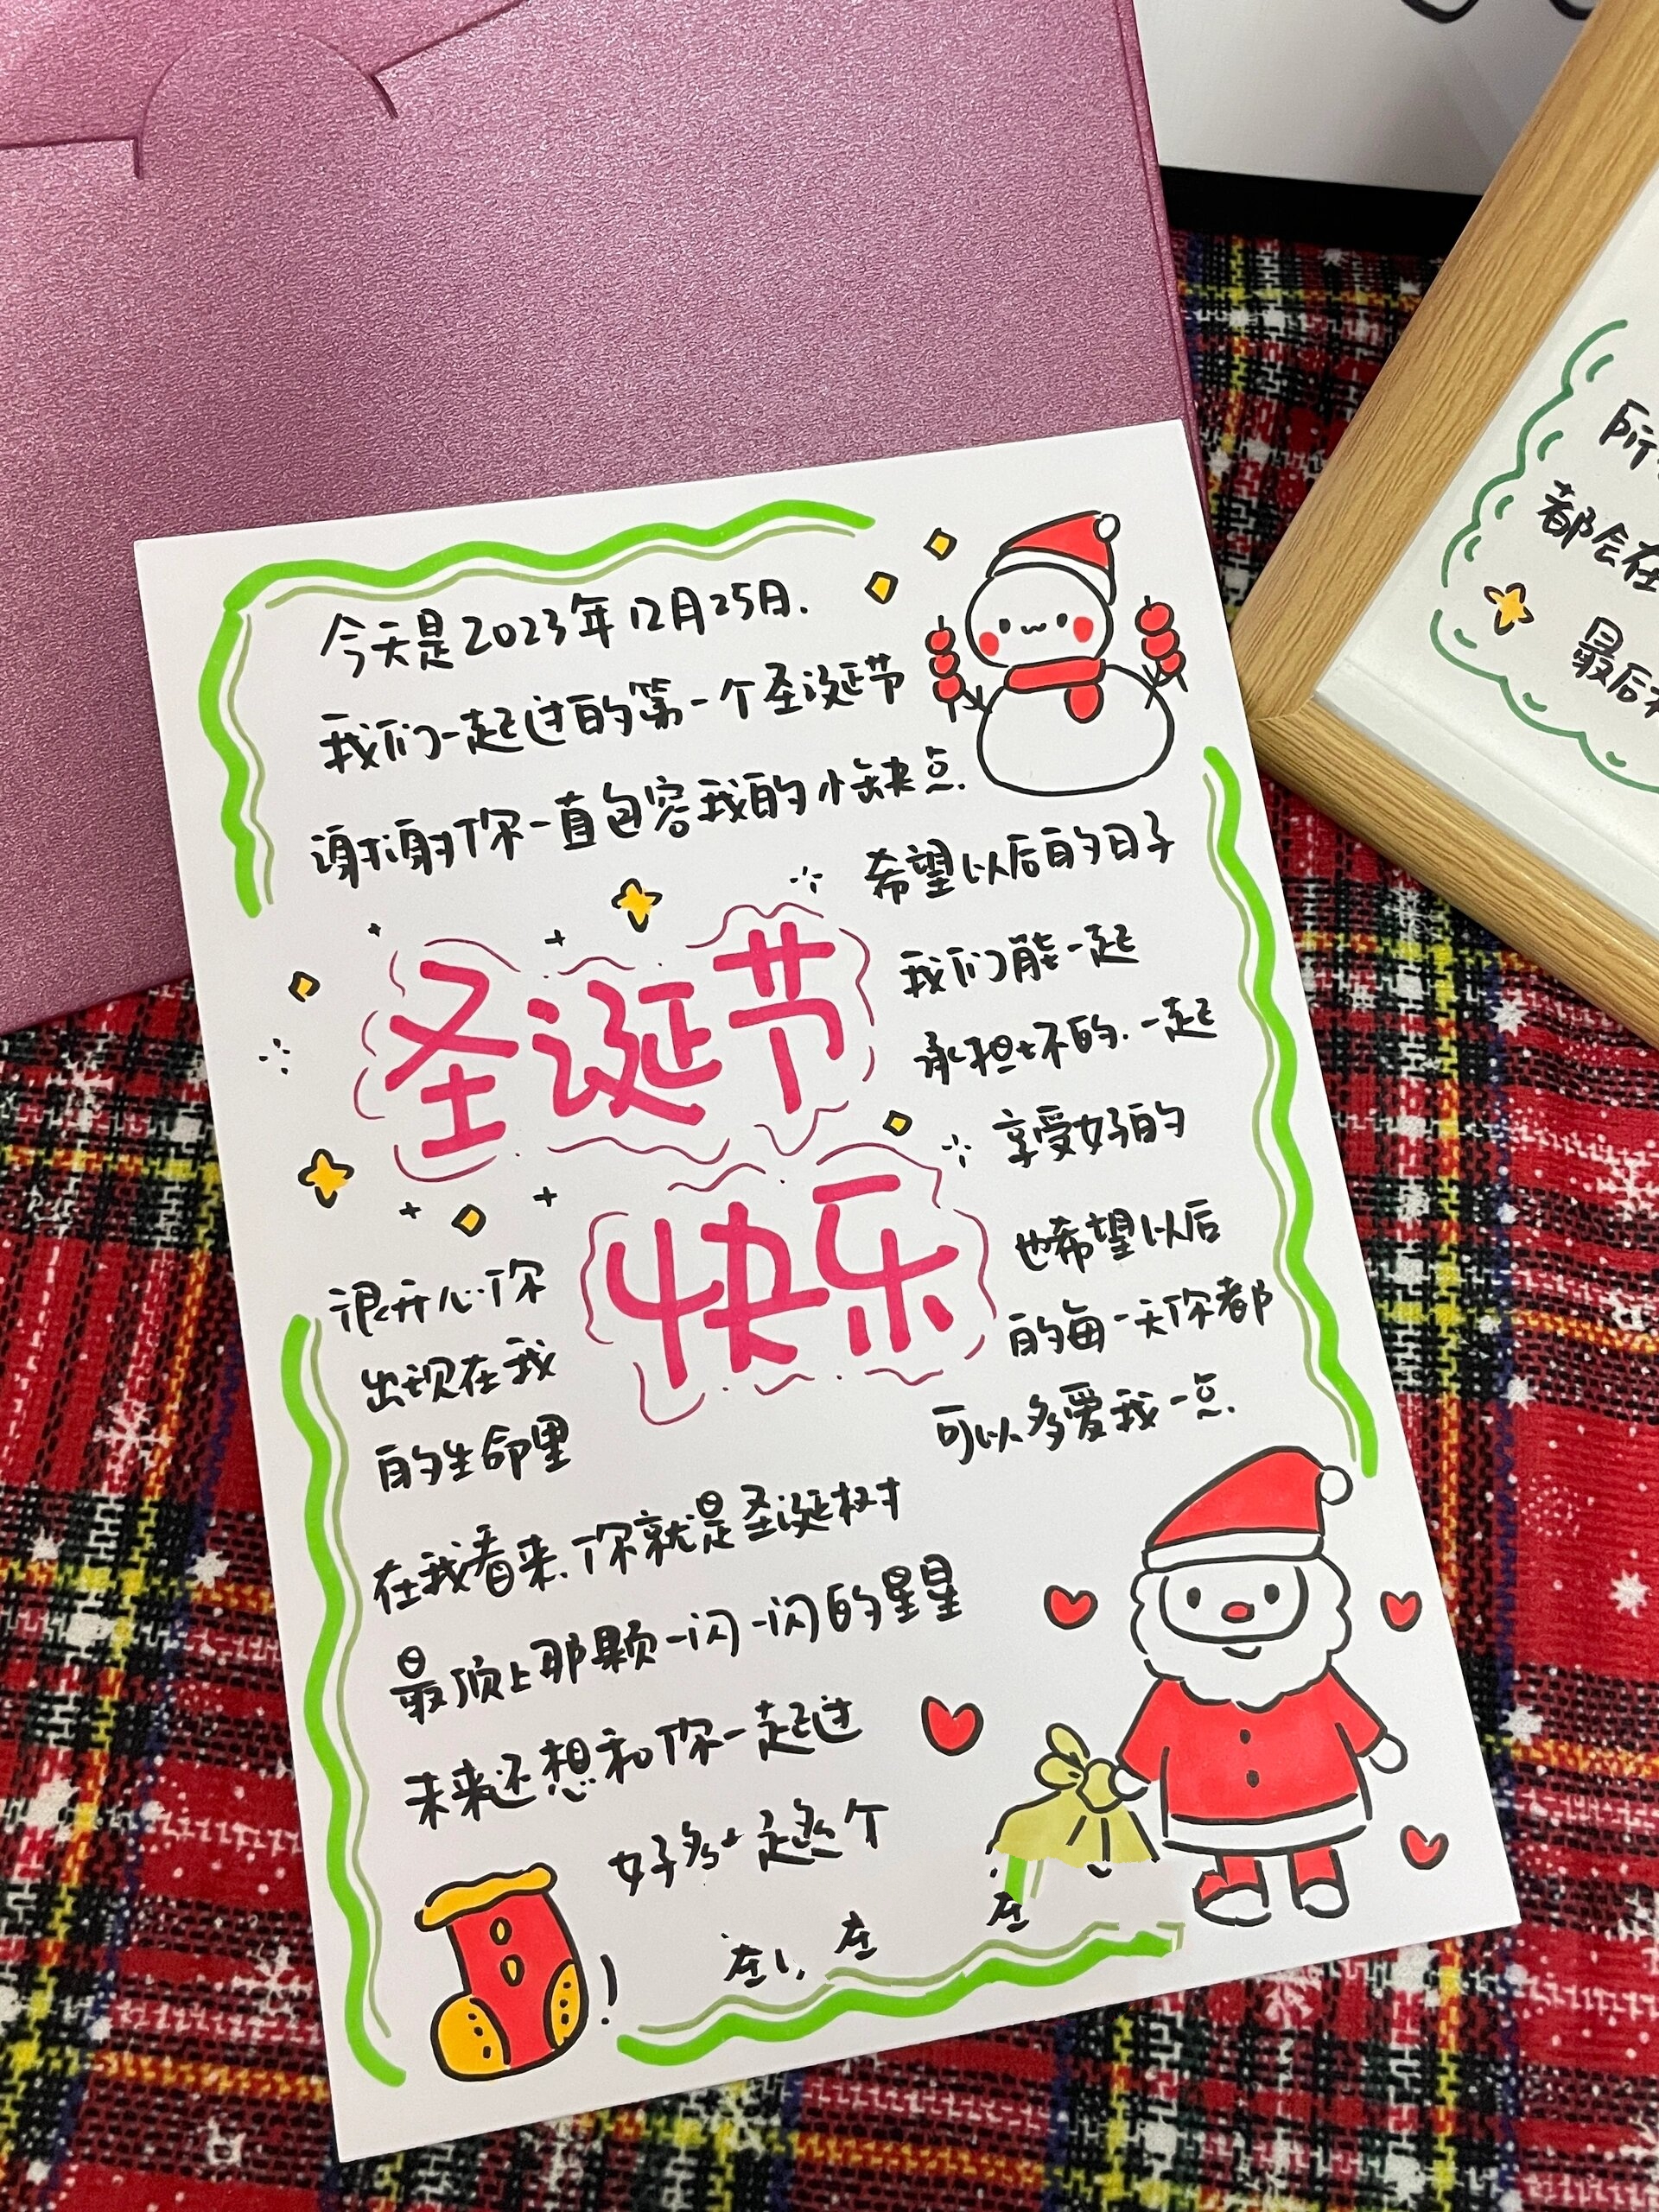 今天是2023年12月25日.
我们一起过的第一个圣诞节
谢谢你一直包容我的小缺点.
希望以后的日子
我们能一起
承担坏的.一起
享受好的
也希望以后
的每一天你都
可以多爱我一点.
圣诞节
快乐
很开心你
出现在我
的生命里
在我看来,你就是圣诞树
最顶上那颗一闪一闪的星星
未来还想和你一起过
好多
个
都会在
最后